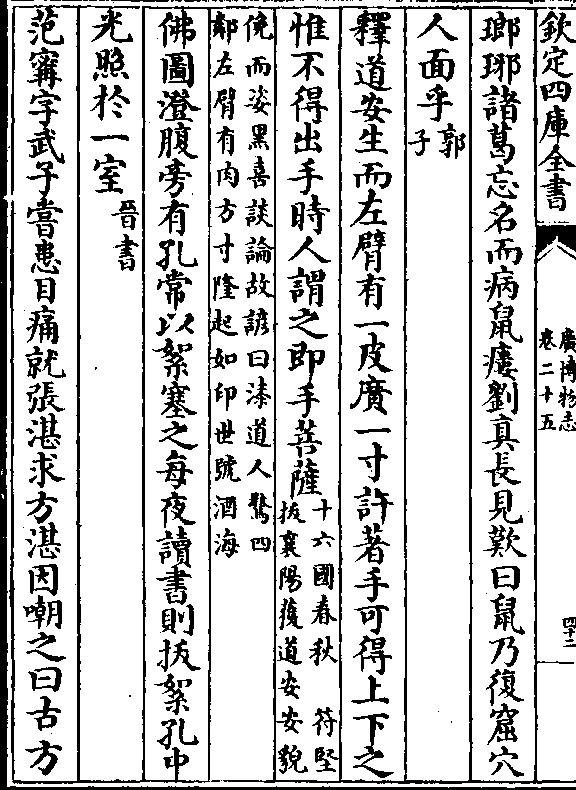 欽定四庫全書
廣博物志
卷二十五
四十二
瑯琊諸葛忘名而病鼠瘻劉真長見歎曰鼠乃復窟穴
人面乎郭子
釋道安生而左臂有一皮廣一寸許著手可得上下之
惟不得出手時人謂之即手菩薩十六國春秋 符堅拔襄陽獲道安安貌
侻而姿黑喜談論故諺曰漆道人驚四鄰左臂有肉方寸隆起如印世號酒海
佛圖澄腹旁有孔常以絮塞之每夜讀書則拔絮孔中
光照於一室晉書
范寗字武子嘗患目痛就張湛求方湛因嘲之曰古方